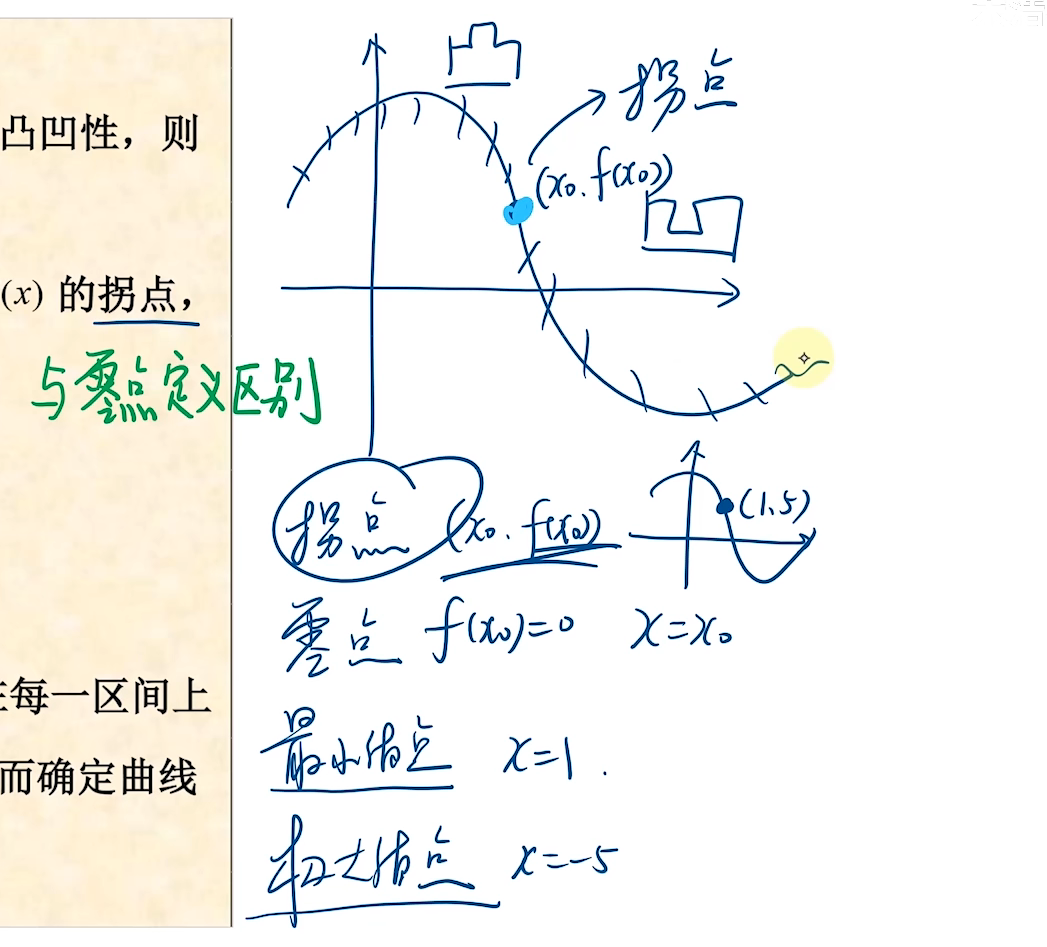 凸凹性，则
拐点
(x₀, f(x₀))
(x) 的拐点，
与零点定义区别
拐点 (x₀, f(x₀))
(1,5)
零点 f(x₀)=0 x=x₀
在每一区间上
最小值点 x=1.
而确定曲线
极大值点 x=-5